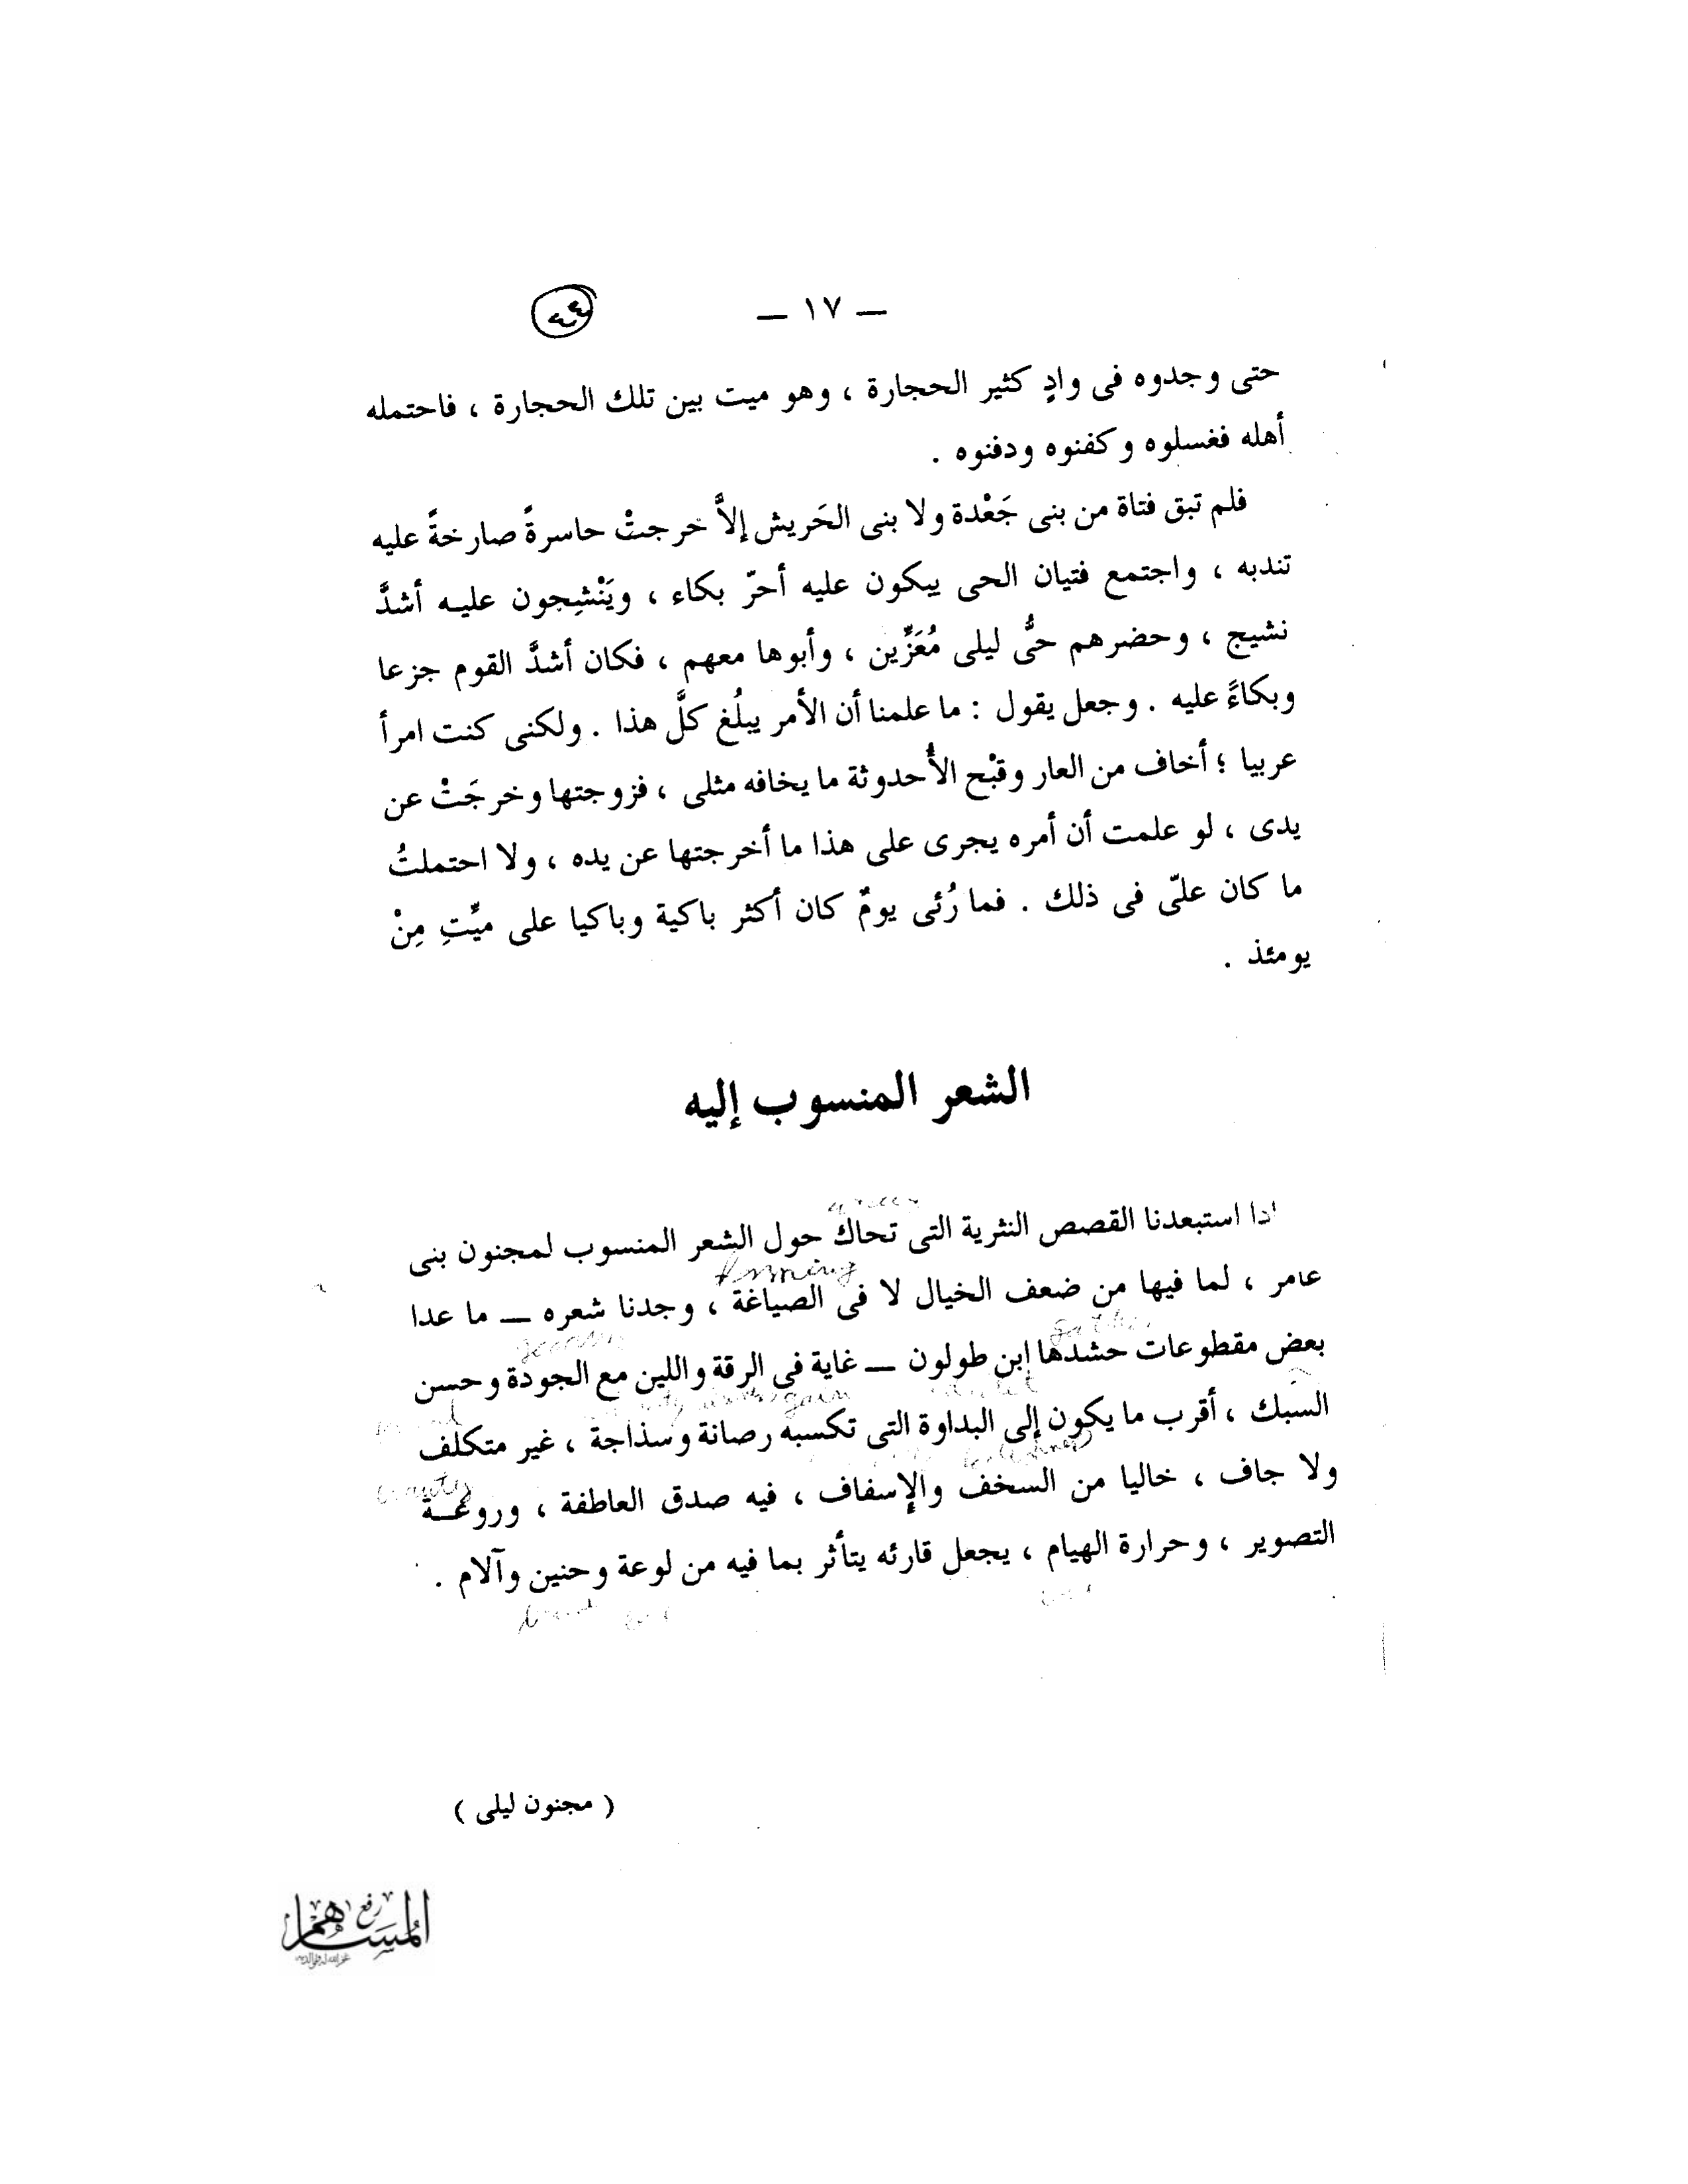 — ١٧ —
حتى وجدوه فى وادٍ كثير الحجارة ، وهو ميت بين تلك الحجارة ، فاحتمله
أهله فغسلوه وكفنوه ودفنوه .
فلم تبق فتاة من بنى جَعْدة ولا بنى الحَريش إلاَّ خرجتْ حاسرةً صارخةً عليه
تندبه ، واجتمع فتيان الحى يبكون عليه أحرّ بكاء ، ويَنْشِجون عليه أشدَّ
نشيج ، وحضرهم حىُّ ليلى مُعَزِّين ، وأبوها معهم ، فكان أشدَّ القوم جزعا
وبكاءً عليه . وجعل يقول : ما علمنا أن الأمر يبلُغ كلَّ هذا . ولكنى كنت امرأ
عربيا ؛ أخاف من العار وقبْح الأُحدوثة ما يخافه مثلى ، فزوجتها وخرجَتْ عن
يدى ، لو علمت أن أمره يجرى على هذا ما أخرجتها عن يده ، ولا احتملتُ
ما كان علىّ فى ذلك . فما رُئى يومٌ كان أكثر باكية وباكيا على ميِّتِ مِنْ
يومئذ .
الشعر المنسوب إليه
إذا استبعدنا القصص النثرية التى تحاك حول الشعر المنسوب لمجنون بنى
forming
عامر ، لما فيها من ضعف الخيال لا فى الصياغة ، وجدنا شعره — ما عدا
بعض مقطوعات حشدها ابن طولون — غاية فى الرقة واللين مع الجودة وحسن
gain
السبك ، أقرب ما يكون إلى البداوة التى تكسبه رصانة وسذاجة ، غير متكلف
beauty
ولا جاف ، خاليا من السخف والإسفاف ، فيه صدق العاطفة ، وروعة
التصوير ، وحرارة الهيام ، يجعل قارئه يتأثر بما فيه من لوعة وحنين وآلام .
( مجنون ليلى )
رفع
المساهم